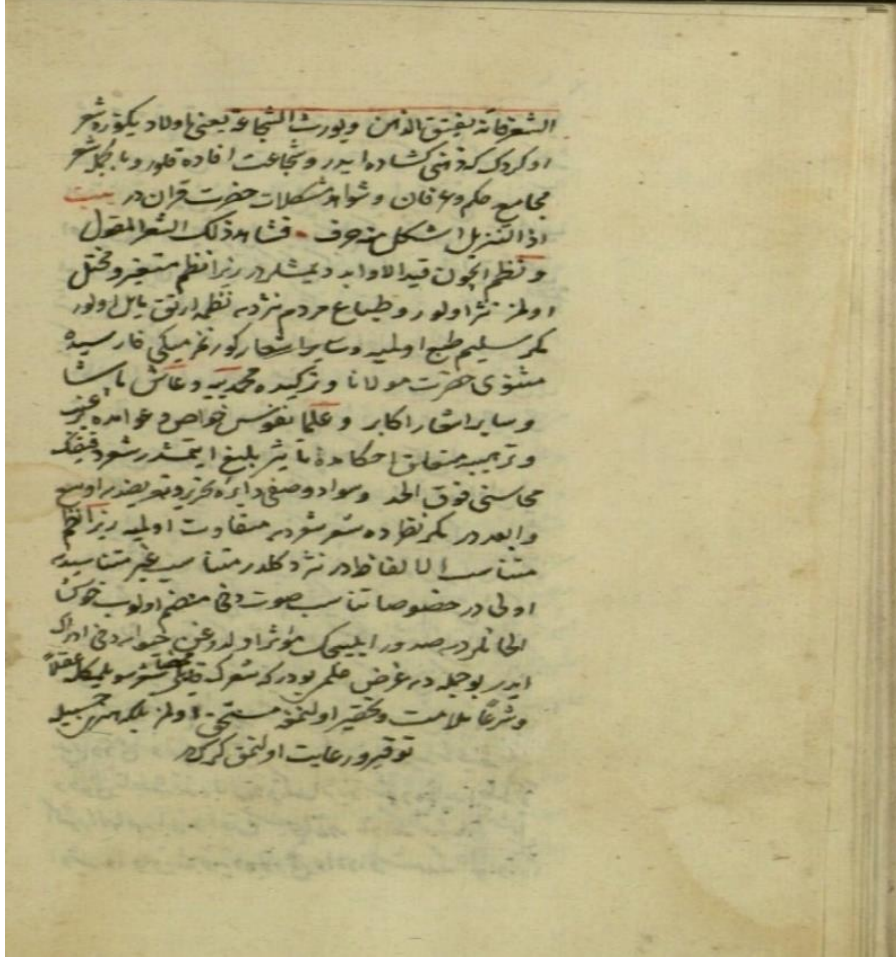 الشعر فانه يفتق الذهن ويورث الشجاعة يعنى اولاد يكوزه شعر
اوكردك كه ذهنى كشاده ايدر و شجاعت افاده قلور و بالجمله شعر
مجامع حكم و عرفان و شواهد مشكلات حضرت قران در بيت
اذا التنزيل اشكل منه حرف فشاهد ذلك الشعر المقول
و نظم ايچون قيد الاوابد ديمشلردر زيرا نظم متغير و مختل
اولمز نثر اولور و طباع مردم نثردن نظمه ارتق مايل اولور
مكر سليم طبع اولميه و ساير اشعار كورنمزميكى فارسيده
مثنوى حضرت مولانا و تركيده محمديه و عاشق پاشا
و ساير اشعار اكابر و علما نفوس خواص و عوامده
و ترهيبه متعلق احكامده تاثير بليغ ايتمشدر شعرك
محاسنى فوق الحد و سواد وصفى دايرۀ تحرير و
و ابعددر مكر شعر شعردن متفاوت اولميه زيرا نظم
متناسب الالفاظدر نثر دكلدر متناسب غير متناسبدن
اولى در خصوصا تناسب صوت دخى منضم اولوب خوش
الحانلردن صدور ايليجك مؤثر اولدوغن حيوان دخى ادراك
ايدر بو جمله دن غرض علم بودركه شعرك شعر سويلمكله عقلاً
و شرعاً ملامت و تحقير اولنمغه مستحق اولمز بلكه
توقير و رعايت اولنمق كرك